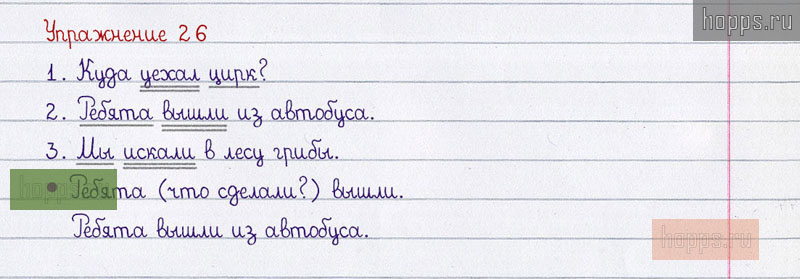 hopps.ru
Упражнение 26
1. Куда уехал цирк?
2. Ребята вышли из автобуса.
3. Мы искали в лесу грибы.
hopps.ru
• Ребята (что сделали?) вышли.
Ребята вышли из автобуса.
hopps.ru